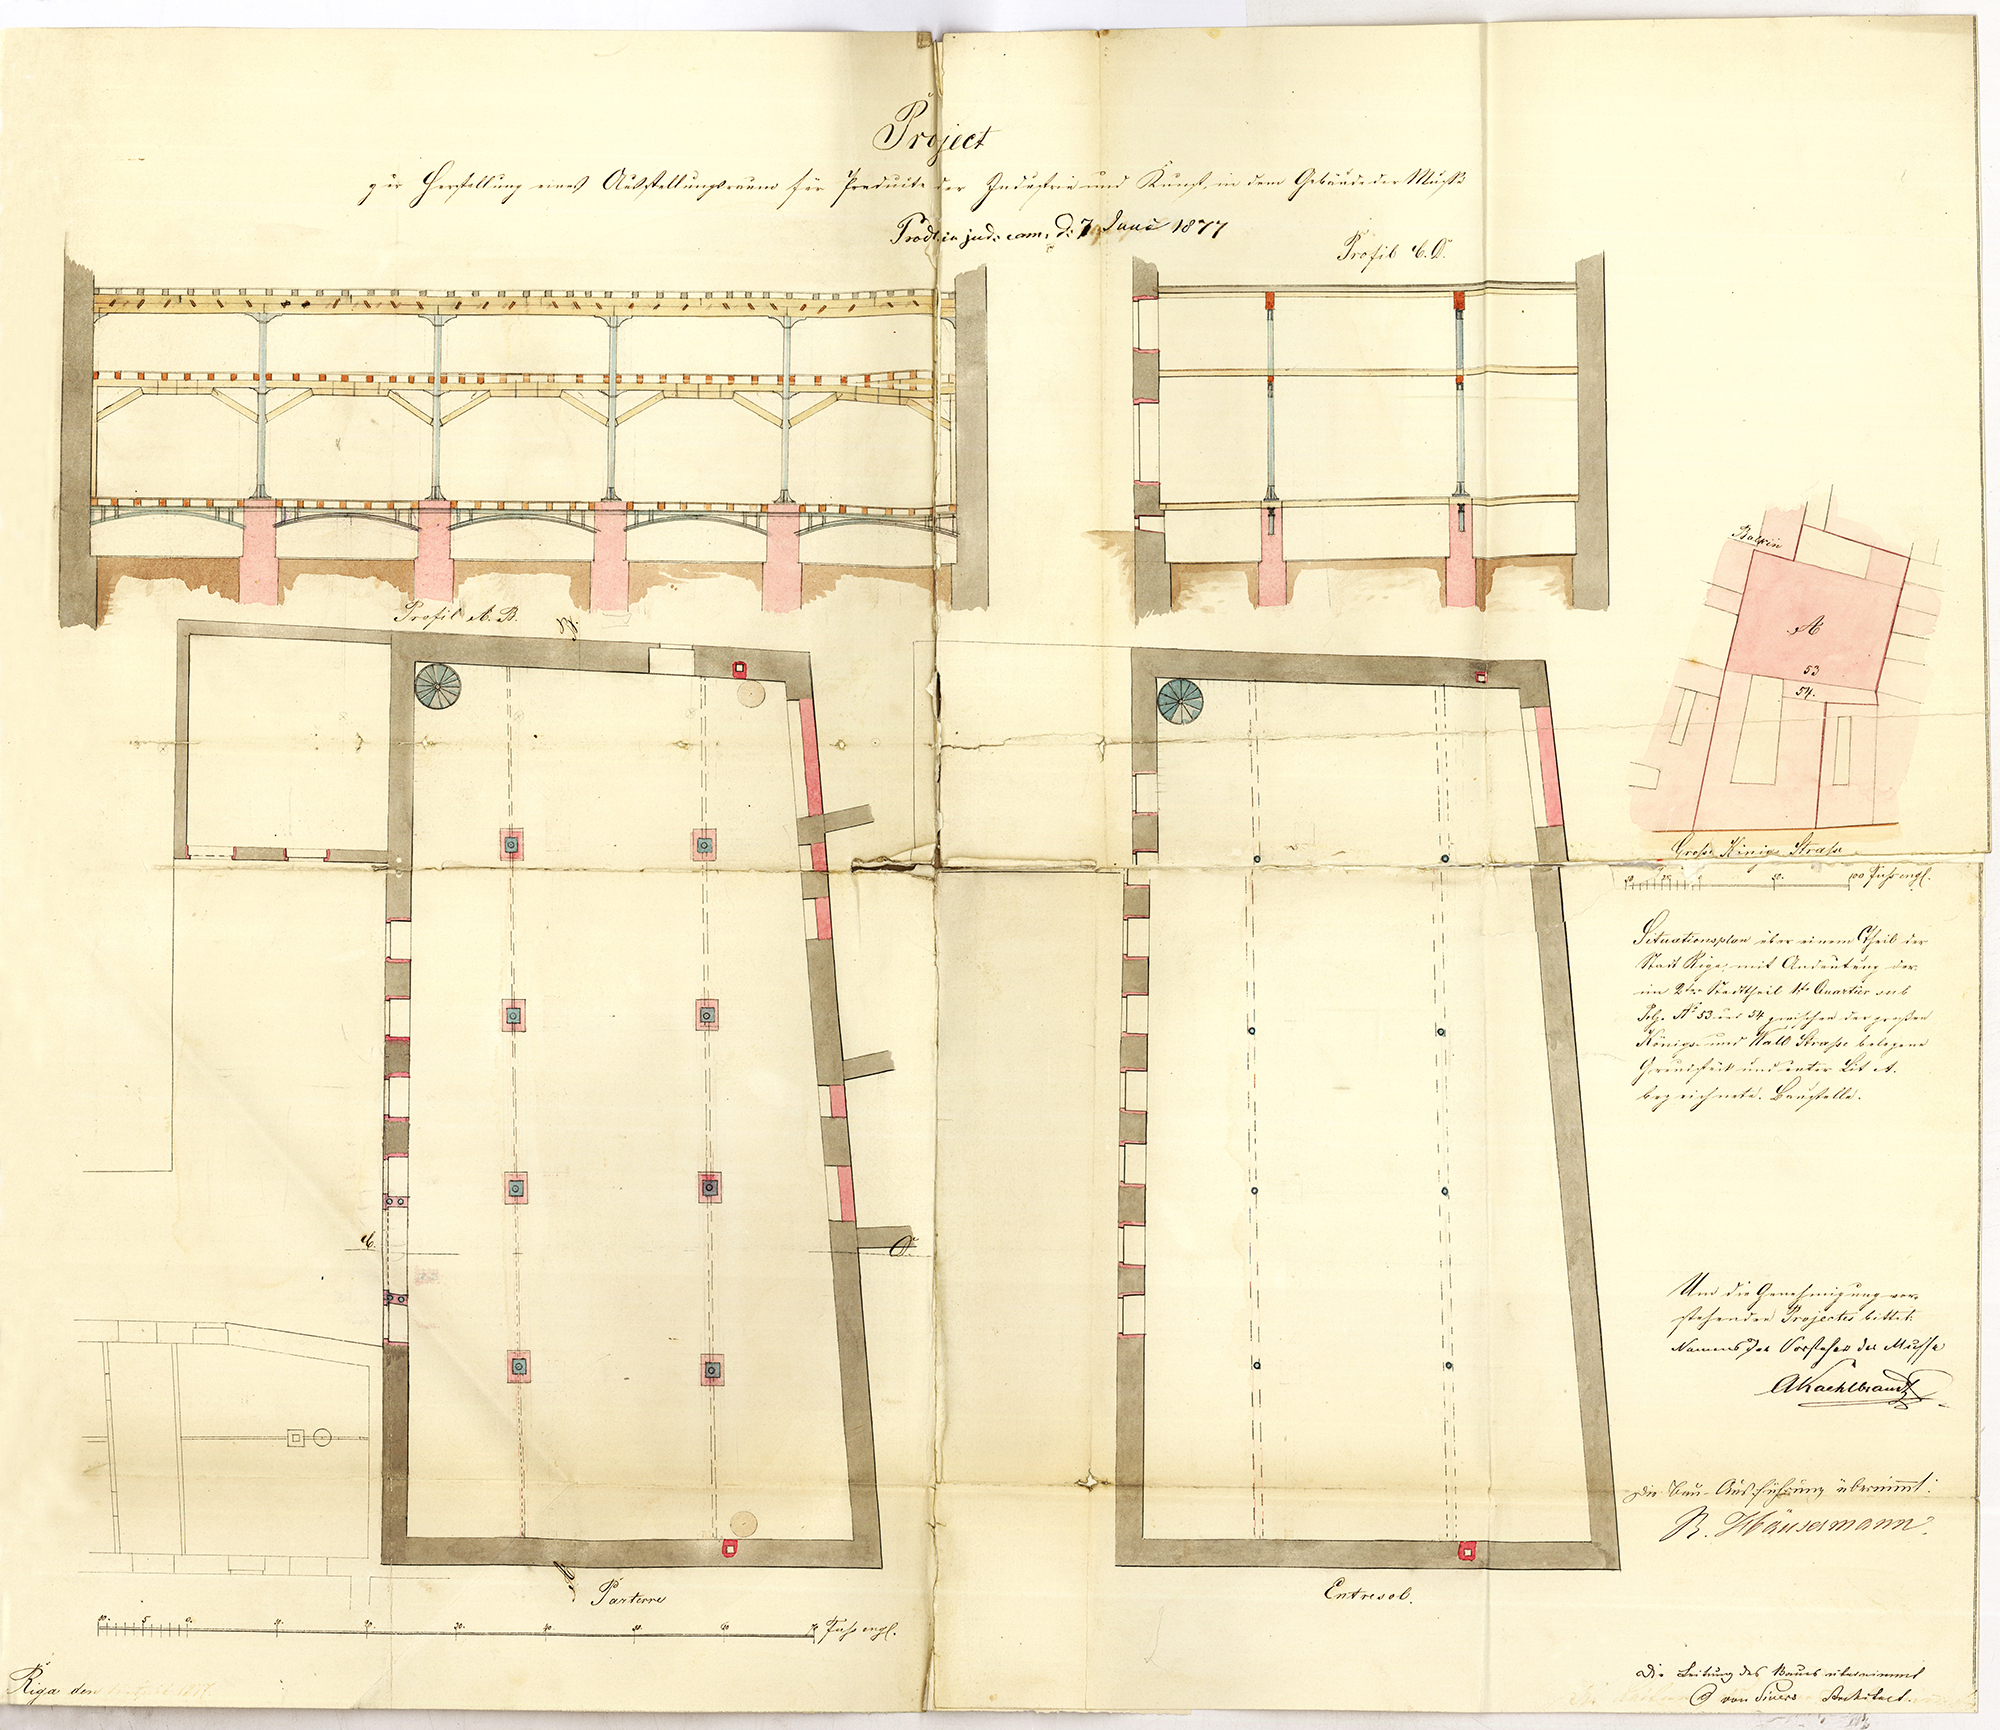 Project
zur Herstellung eines Ausstellungsraums für Producte der Industrie und Kunst, in dem Gebäude der Muße
Prod. in jud. cam. d. 7 Juni 1877
Profil C. D.
Profil A. B.
B.
A
53
54.
Große Königs Straße
50. 100 Fuß engl.
Situationsplan über einem Theil der
Stadt Riga, mit Andeutung der
im 2ten Stadttheil 1te Quartier sub
Pol. No 53 und 54 zwischen der großen
Königs- und Wall Straße belegene
Grundstück und unter Lit. A.
bezeichnete Baustelle.
C. D.
Um die Genehmigung vor-
stehenden Projectes bittet:
Namens der Vorsteher der Muße
AKaehlbrandt
Die Bau-Ausführung übernimmt:
R. Häusermann
A.
Parterre
Entresol.
10. 5 0. 10. 20. 30. 40. 50. 60 70 Fuß engl.
Die Leitung des Baues übernimmt
von Sivers Architect.
Riga den